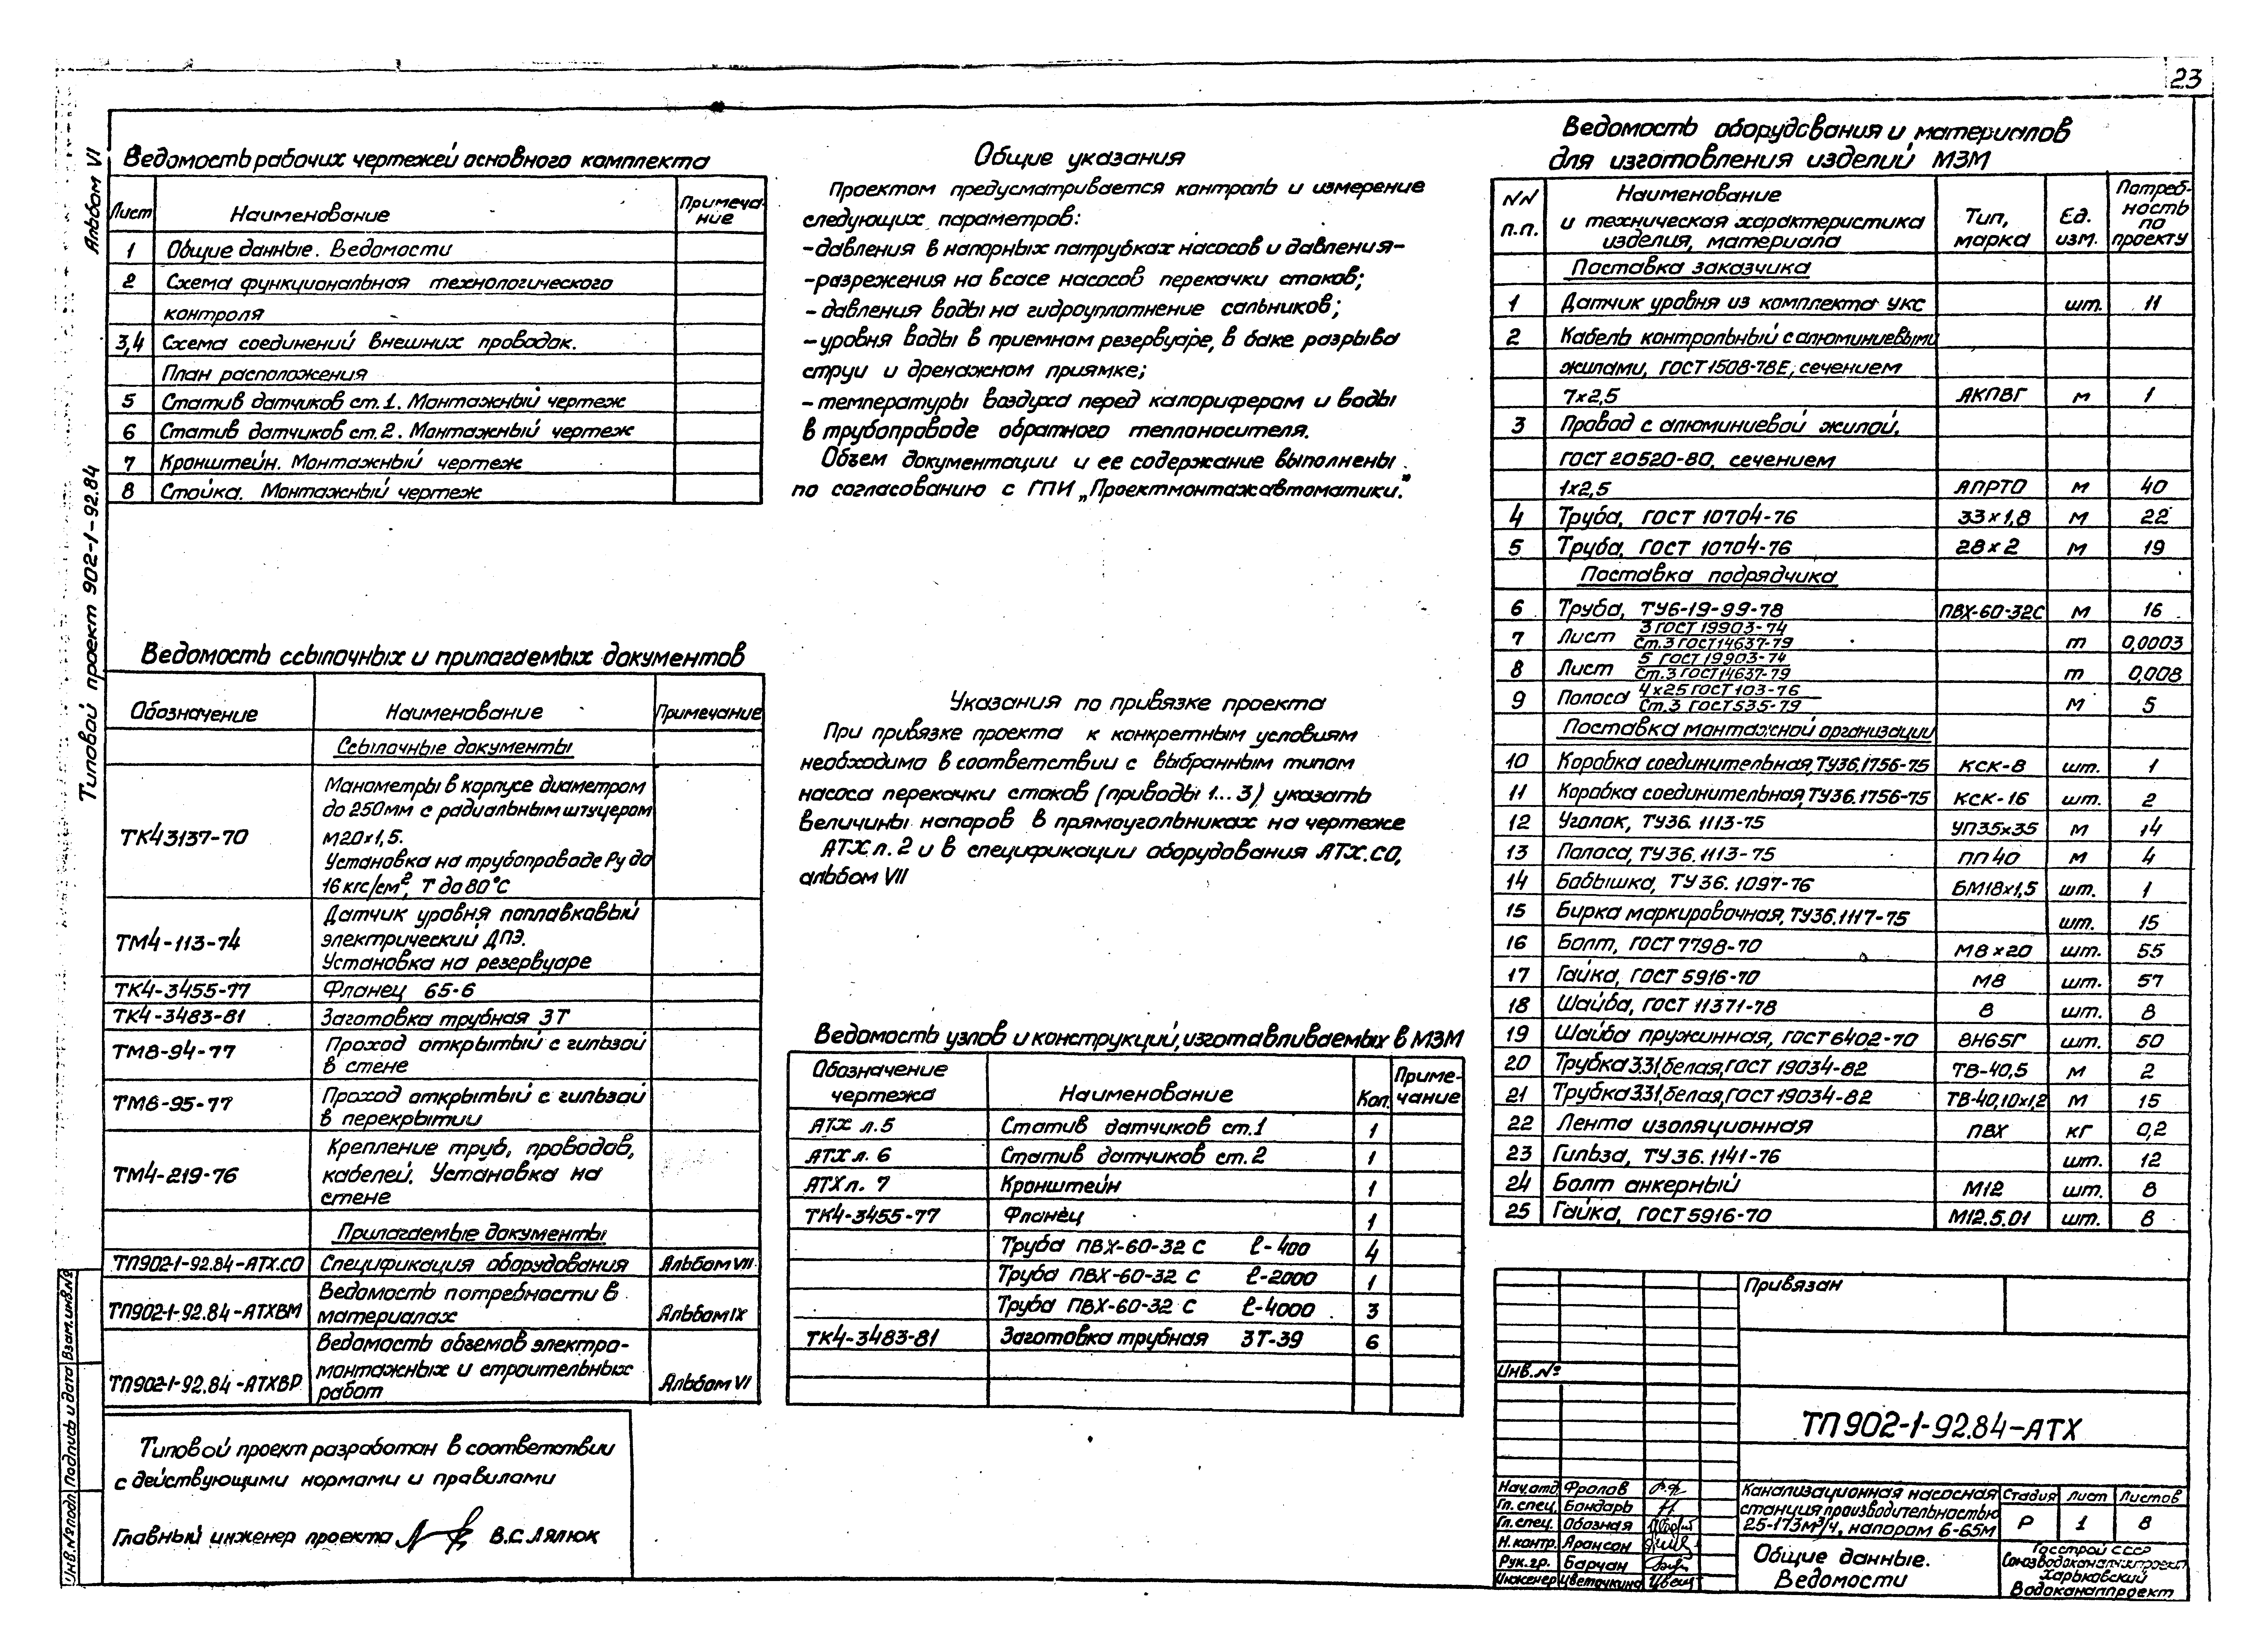 23
Альбом VI
Типовой проект 902-1-92.84
Ведомость рабочих чертежей основного комплекта
Лист Наименование Примеча-ние
1 Общие данные. Ведомости
2 Схема функциональная технологического
контроля
3,4 Схема соединений внешних проводок.
План расположения
5 Статив датчиков ст.1. Монтажный чертеж
6 Статив датчиков ст.2. Монтажный чертеж
7 Кронштейн. Монтажный чертеж
8 Стойка. Монтажный чертеж
Ведомость ссылочных и прилагаемых документов
Обозначение Наименование Примечание
Ссылочные документы
Манометры в корпусе диаметром
до 250мм с радиальным штуцером
ТК43137-70 М20х1,5.
Установка на трубопроводе Ру до
16 кгс/см², Т до 80°С
Датчик уровня поплавковый
ТМ4-113-74 электрический ДПЭ.
Установка на резервуаре
ТК4-3455-77 Фланец 65-6
ТК4-3483-81 Заготовка трубная ЗТ
ТМ8-94-77 Проход открытый с гильзой
в стене
ТМ8-95-77 Проход открытый с гильзой
в перекрытии
Крепление труб, проводов,
ТМ4-219-76 кабелей. Установка на
стене
Прилагаемые документы
ТП902-1-92.84-АТХ.СО Спецификация оборудования Альбом VII
Ведомость потребности в
ТП902-1-92.84-АТХВМ материалах Альбом IX
Ведомость объемов электро-
монтажных и строительных
ТП902-1-92.84-АТХВР работ Альбом VI
Типовой проект разработан в соответствии
с действующими нормами и правилами
Главный инженер проекта В.С.Лялюк
Инв.№подл Подпись и дата Взам.инв.№
Общие указания
Проектом предусматривается контроль и измерение
следующих параметров:
-давления в напорных патрубках насосов и давления-
-разрежения на всасе насосов перекачки стоков;
-давления воды на гидроуплотнение сальников;
-уровня воды в приемном резервуаре, в баке разрыва
струи и дренажном приямке;
-температуры воздуха перед калорифером и воды
в трубопроводе обратного теплоносителя.
Объем документации и ее содержание выполнены
по согласованию с ГПИ „Проектмонтажавтоматики."
Указания по привязке проекта
При привязке проекта к конкретным условиям
необходимо в соответствии с выбранным типом
насоса перекачки стоков (приводы 1...3) указать
величины напоров в прямоугольниках на чертеже
АТХ л.2 и в спецификации оборудования АТХ.СО,
альбом VII
Ведомость узлов и конструкций, изготавливаемых в МЗМ
Обозначение чертежа Наименование Кол. Приме-чание
АТХ л.5 Статив датчиков ст.1 1
АТХ л. 6 Статив датчиков ст.2 1
АТХ л. 7 Кронштейн 1
ТК4-3455-77 Фланец 1
Труба ПВХ-60-32 С ℓ-400 4
Труба ПВХ-60-32 С ℓ-2000 1
Труба ПВХ-60-32 С ℓ-4000 3
ТК4-3483-81 Заготовка трубная ЗТ-39 6
Ведомость оборудования и материалов
для изготовления изделий МЗМ
NN п.п. Наименование и техническая характеристика изделия, материала Тип, марка Ед. изм. Потреб-ность по проекту
Поставка заказчика
1 Датчик уровня из комплекта УКС шт. 11
2 Кабель контрольный с алюминиевыми
жилами, ГОСТ 1508-78Е, сечением
7х2,5 АКПВГ м 1
3 Провод с алюминиевой жилой,
ГОСТ 20520-80, сечением
1х2,5 АПРТО м 40
4 Труба, ГОСТ 10704-76 33х1,8 м 22
5 Труба, ГОСТ 10704-76 28х2 м 19
Поставка подрядчика
6 Труба, ТУ6-19-99-78 ПВХ-60-32С м 16
7 Лист 3 ГОСТ 19903-74 / Ст.3 ГОСТ 14637-79 т 0,0003
8 Лист 5 ГОСТ 19903-74 / Ст.3 ГОСТ 14637-79 т 0,008
9 Полоса 4х25 ГОСТ 103-76 / Ст.3 ГОСТ 535-79 м 5
Поставка монтажной организации
10 Коробка соединительная, ТУ36.1756-75 КСК-8 шт. 1
11 Коробка соединительная, ТУ36.1756-75 КСК-16 шт. 2
12 Уголок, ТУ36.1113-75 УП35х35 м 14
13 Полоса, ТУ36.1113-75 ПП40 м 4
14 Бобышка, ТУ36.1097-76 БМ18х1,5 шт. 1
15 Бирка маркировочная, ТУ36.1117-75 шт. 15
16 Болт, ГОСТ 7798-70 М8х20 шт. 55
17 Гайка, ГОСТ 5916-70 М8 шт. 57
18 Шайба, ГОСТ 11371-78 8 шт. 8
19 Шайба пружинная, ГОСТ6402-70 8Н65Г шт. 50
20 Трубка 3.31, белая, ГОСТ 19034-82 ТВ-40,5 м 2
21 Трубка 3.31, белая, ГОСТ 19034-82 ТВ-40,10х1,2 м 15
22 Лента изоляционная ПВХ кг 0,2
23 Гильза, ТУ36.1141-76 шт. 12
24 Болт анкерный М12 шт. 8
25 Гайка, ГОСТ5916-70 М12.5.01 шт. 8
Привязан
Инв.№
ТП902-1-92.84-АТХ
Нач.отд. Фролов
Гл. спец. Бондарь
Гл. спец. Обозная
Н.контр. Арансон
Рук.гр. Барчан
Инженер Цветочкина
Канализационная насосная
станция производительностью
25-173м³/ч, напором 6-65м
Стадия Лист Листов
Р 1 8
Общие данные.
Ведомости
Госстрой СССР
Союзводоканалпроект
Харьковский
Водоканалпроект